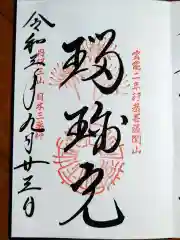 霊亀二年行基菩薩開山
瑠璃光
日本三薬師
令和三年九月廿三日